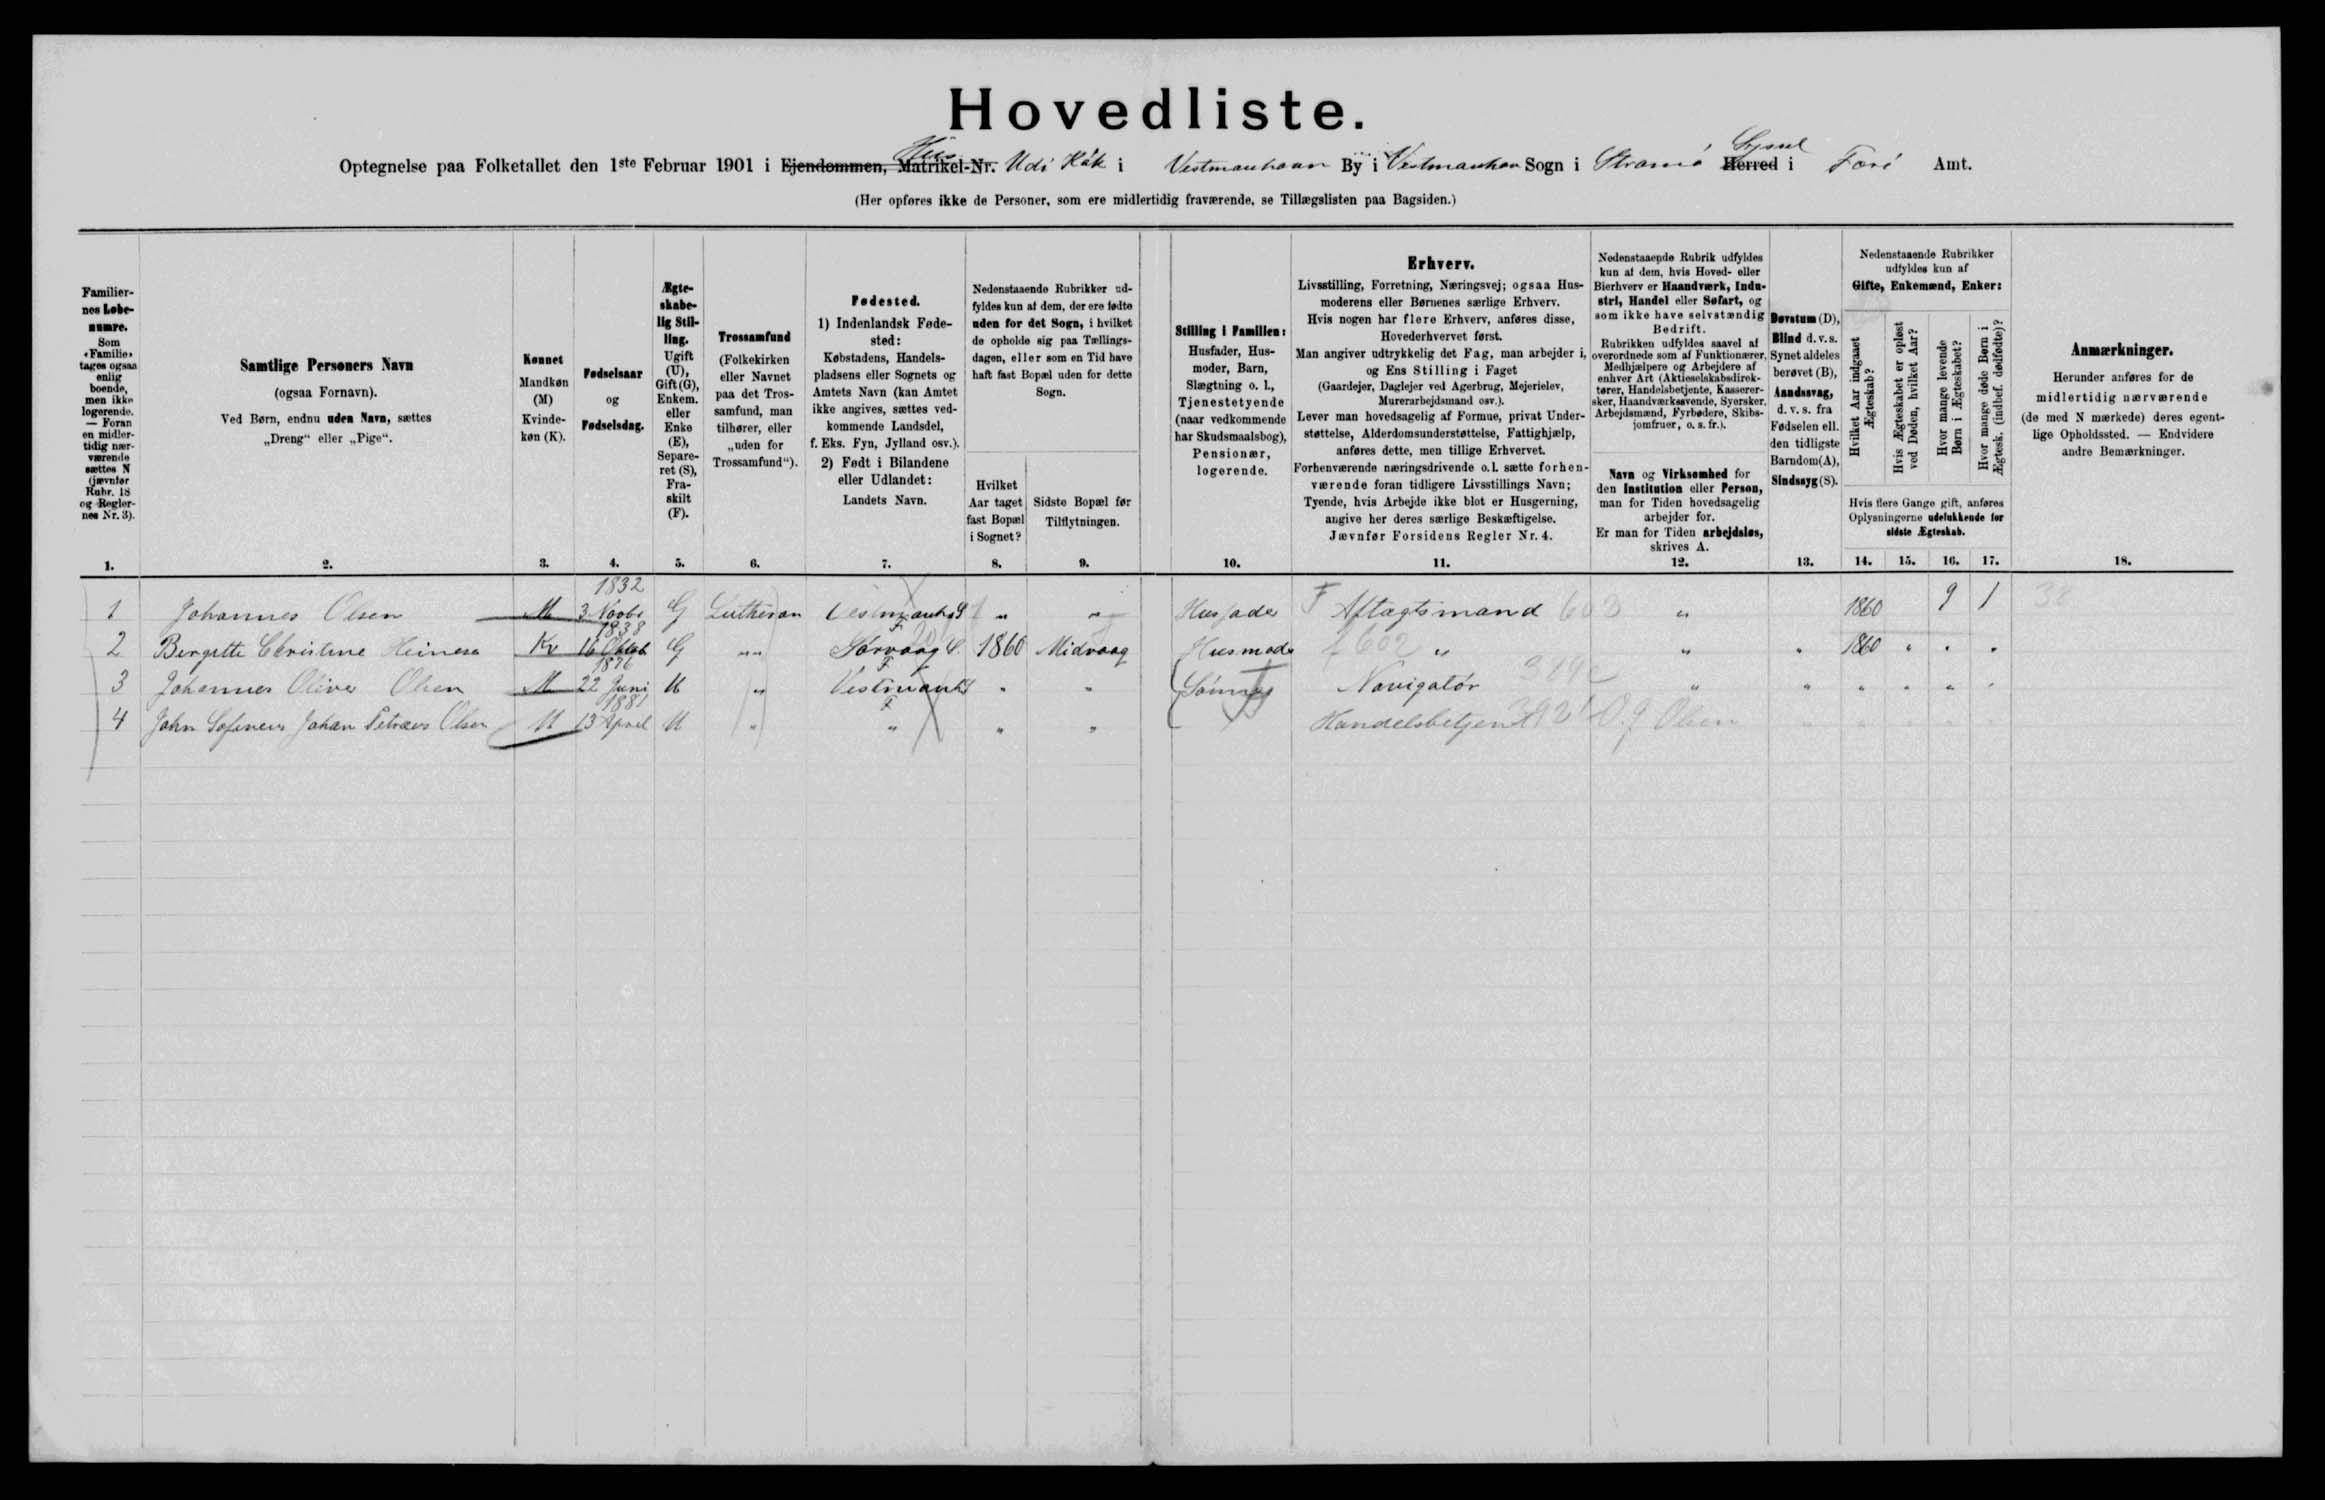 Hovedliste.
Optegnelse paa Folketallet den 1ste Februar 1901 i Ejendommen, Matrikel-Nr. Hus Udi Kák i Vestmanhavn By i Vestmanhavn Sogn i Stromö Herred Syssel i Færö Amt.
(Her opføres ikke de Personer, som ere midlertidig fraværende, se Tillægslisten paa Bagsiden.)
Familiernes Løbenumre.
Som «Familie» tages ogsaa enlig boende, men ikke logerende. — Foran en midlertidig nærværende sættes N (jævnfør Rubr. 18 og Reglernes Nr. 3).
Samtlige Personers Navn
(ogsaa Fornavn).
Ved Børn, endnu uden Navn, sættes
„Dreng“ eller „Pige“.
Kønnet
Mandkøn (M)
Kvindekøn (K).
Fødselsaar
og
Fødselsdag.
Ægteskabelig Stilling.
Ugift (U), Gift (G), Enkem. eller Enke (E), Separeret (S), Fraskilt (F).
Trossamfund
(Folkekirken eller Navnet paa det Trossamfund, man tilhører, eller „uden for Trossamfund“).
Fødested.
1) Indenlandsk Fødested:
Købstadens, Handelspladsens eller Sognets og Amtets Navn (kan Amtet ikke angives, sættes vedkommende Landsdel, f. Eks. Fyn, Jylland osv.).
2) Født i Bilandene eller Udlandet:
Landets Navn.
Nedenstaaende Rubrikker udfyldes kun af dem, der ere fødte uden for det Sogn, i hvilket de opholde sig paa Tællingsdagen, eller som en Tid have haft fast Bopæl uden for dette Sogn.
Hvilket Aar taget fast Bopæl i Sognet?
Sidste Bopæl før Tilflytningen.
Stilling i Familien:
Husfader, Husmoder, Barn, Slægtning o. l., Tjenestetyende (naar vedkommende har Skudsmaalsbog), Pensionær, logerende.
Erhverv.
Livsstilling, Forretning, Næringsvej; ogsaa Husmoderens eller Børnenes særlige Erhverv.
Hvis nogen har flere Erhverv, anføres disse, Hovederhvervet først.
Man angiver udtrykkelig det Fag, man arbejder i, og Ens Stilling i Faget
(Gaardejer, Daglejer ved Agerbrug, Mejerielev, Murerarbejdsmand osv.).
Lever man hovedsagelig af Formue, privat Understøttelse, Alderdomsunderstøttelse, Fattighjælp, anføres dette, men tillige Erhvervet.
Forhenværende næringsdrivende o. l. sætte forhenværende foran tidligere Livsstillings Navn;
Tyende, hvis Arbejde ikke blot er Husgerning, angive her deres særlige Beskæftigelse.
Jævnfør Forsidens Regler Nr. 4.
Nedenstaaende Rubrik udfyldes kun af dem, hvis Hoved- eller Bierhverv er Haandværk, Industri, Handel eller Søfart, og som ikke have selvstændig Bedrift.
Rubrikken udfyldes saavel af overordnede som af Funktionærer, Medhjælpere og Arbejdere af enhver Art (Aktieselskabsdirektører, Handelsbetjente, Kasserersker, Haandværkssvende, Syersker, Arbejdsmænd, Fyrbødere, Skibsjomfruer, o. s. fr.).
Navn og Virksomhed for den Institution eller Person, man for Tiden hovedsagelig arbejder for.
Er man for Tiden arbejdsløs, skrives A.
Døvstum (D), Blind d. v. s. Synet aldeles berøvet (B), Aandssvag, d. v. s. fra Fødselen ell. den tidligste Barndom (A), Sindssyg (S).
Nedenstaaende Rubrikker udfyldes kun af
Gifte, Enkemænd, Enker:
Hvilket Aar indgaaet Ægteskab?
Hvis Ægteskabet er opløst ved Døden, hvilket Aar?
Hvor mange levende Børn i Ægteskabet?
Hvor mange døde Børn i Ægtesk. (indbef. dødfødte)?
Hvis flere Gange gift, anføres Oplysningerne udelukkende for sidste Ægteskab.
Anmærkninger.
Herunder anføres for de midlertidig nærværende (de med N mærkede) deres egentlige Opholdssted. — Endvidere andre Bemærkninger.
1. 2. 3. 4. 5. 6. 7. 8. 9. 10. 11. 12. 13. 14. 15. 16. 17. 18.
1 Johannes Olsen M 1832 3 Novbr G Lutheran Vestmanh " " Husfader F Aftægtsmand 603 " 1860 9 1 38
2 Bergitte Christine Heinesen Kv 1838 16 Oktob G "" F Sørvaag 1860 Midvaag Husmoder f 602 " " " 1860 " " "
3 Johannes Oliver Olsen M 1876 22 Juni U " F Vestmanh " " Sønner Navigatör " " " " " "
4 John Sofineus Johan Petræus Olsen M 1881 13 April U " F " " " Handelsbetjent O. J Olsen " " " " "